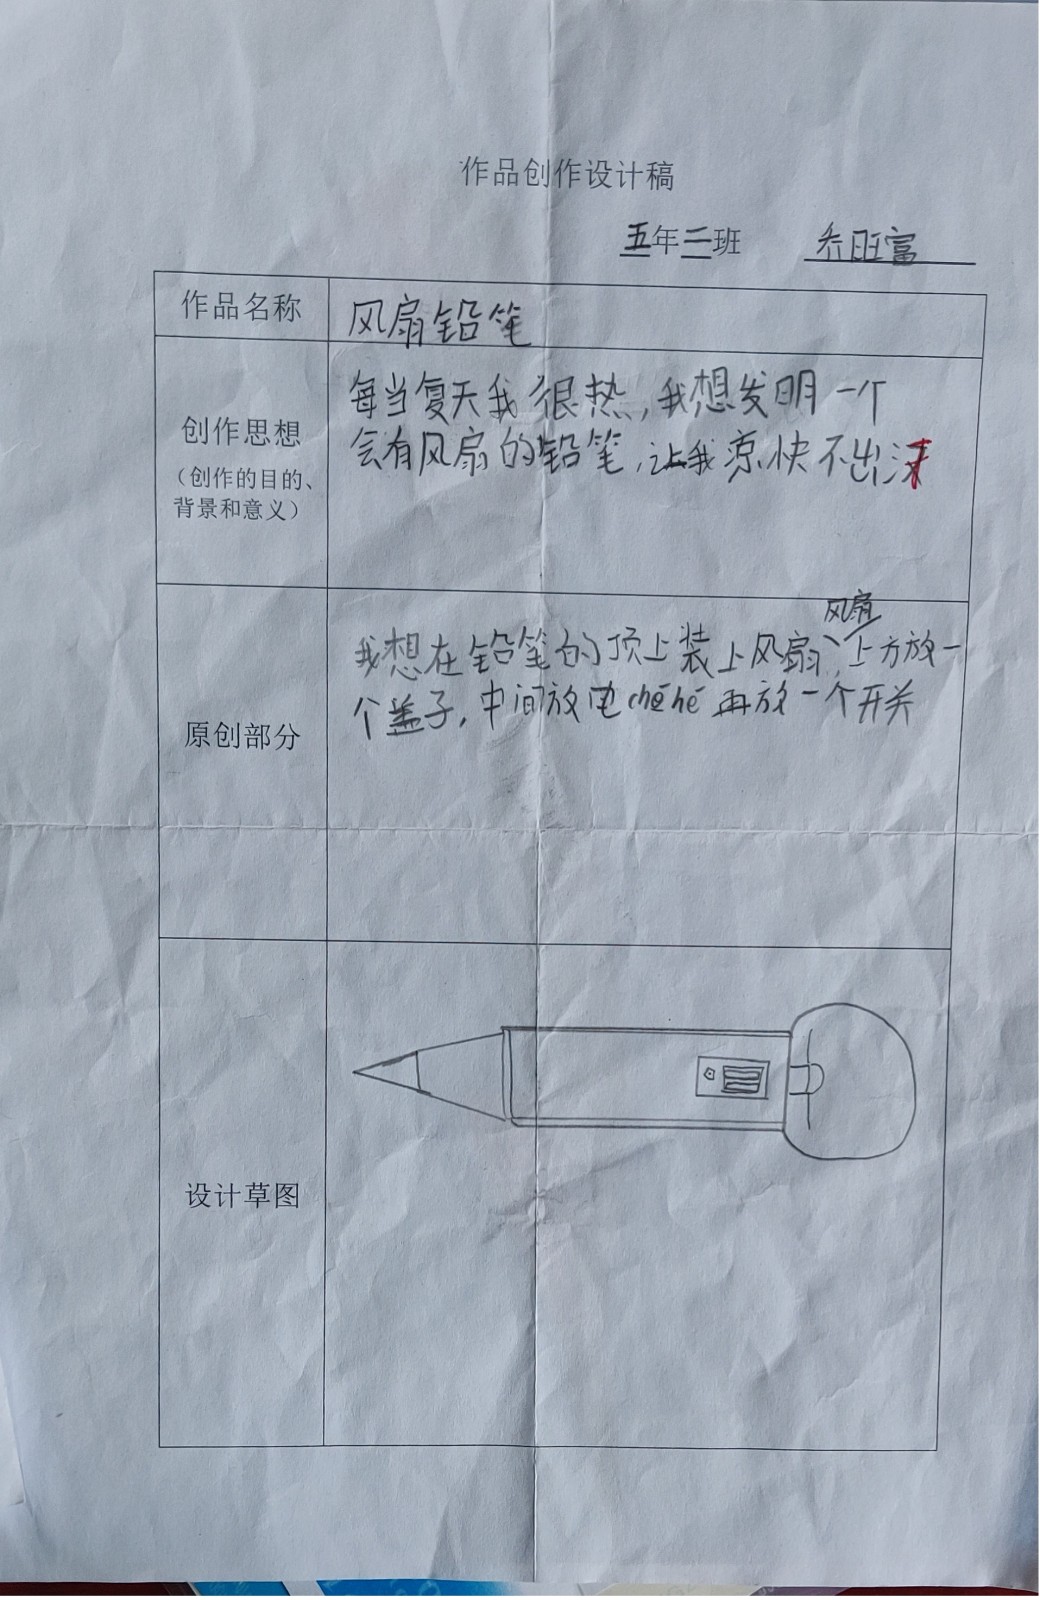 作品创作设计稿
五年二班 乔旺富
作品名称
风扇铅笔
创作思想
（创作的目的、
背景和意义）
每当夏天我很热，我想发明一个
会有风扇的铅笔，让我凉快不出汗
原创部分
风扇
我想在铅笔的顶上装上风扇，上方放一
个盖子，中间放电chē hé 再放一个开关
设计草图